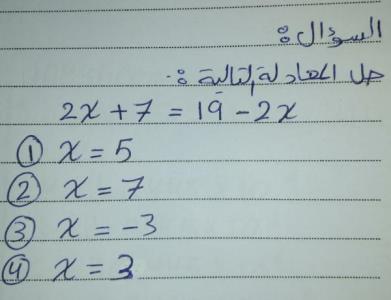 السؤال:
حل المعادلة التالية:
2x + 7 = 19 - 2x
① x = 5
② x = 7
③ x = -3
④ x = 3